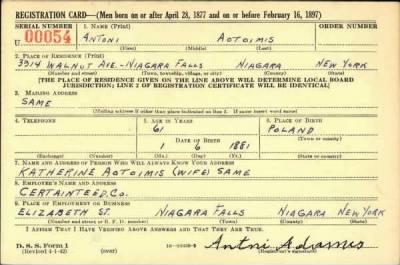 REGISTRATION CARD—(Men born on or after April 28, 1877 and on or before February 16, 1897)
SERIAL NUMBER 1. NAME (Print)
U 00054 ANTONI AOTOIMIS
(First) (Middle) (Last)
2. PLACE OF RESIDENCE (Print)
3914 WALNUT AVE.-NIAGARA FALLS NIAGARA NEW YORK
(Number and street) (Town, township, village, or city) (County) (State)
[THE PLACE OF RESIDENCE GIVEN ON THE LINE ABOVE WILL DETERMINE LOCAL BOARD
JURISDICTION; LINE 2 OF REGISTRATION CERTIFICATE WILL BE IDENTICAL]
3. MAILING ADDRESS
SAME
[Mailing address if other than place indicated on line 2. If same insert word same]
4. TELEPHONE 5. AGE IN YEARS 6. PLACE OF BIRTH
61 POLAND
DATE OF BIRTH (Town or county)
1 6 1881
(Exchange) (Number) (Mo.) (Day) (Yr.) (State or country)
7. NAME AND ADDRESS OF PERSON WHO WILL ALWAYS KNOW YOUR ADDRESS
KATHERINE AOTOIMIS (WIFE) SAME
8. EMPLOYER'S NAME AND ADDRESS
CERTAINTEED, CO.
9. PLACE OF EMPLOYMENT OR BUSINESS
ELIZABETH ST. NIAGARA FALLS NIAGARA NEW YORK
(Number and street or R. F. D. number) (Town) (County) (State)
I AFFIRM THAT I HAVE VERIFIED ABOVE ANSWERS AND THAT THEY ARE TRUE.
D. S. S. Form 1
(Revised 4-1-42) (over) Antni Adamis
(Registrant's signature)